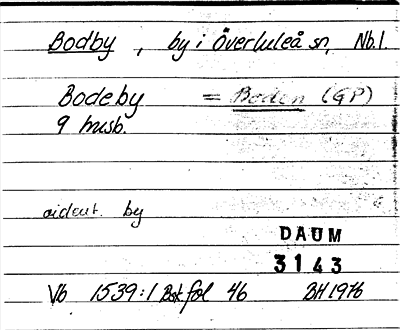 Bodby, by i Överluleå sn, Nb.l.
Bodeby = Boden (GP)
9 husb.
oident. by
DAUM
3143
Vb 1539:1 Bsk fol 46 BH 1976